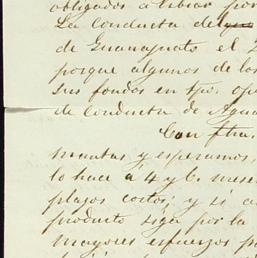 obligados a librar por
La conducta de
de Guanajuato el 2
porque algunos de los
sus fondos en tpo. opo
de conducta de Agua
Con fha.
mantas y esperamos,
lo hace á 4 y 6 mese
plazos cortos; y si a
producto siga por la
mayores esfuerzos p